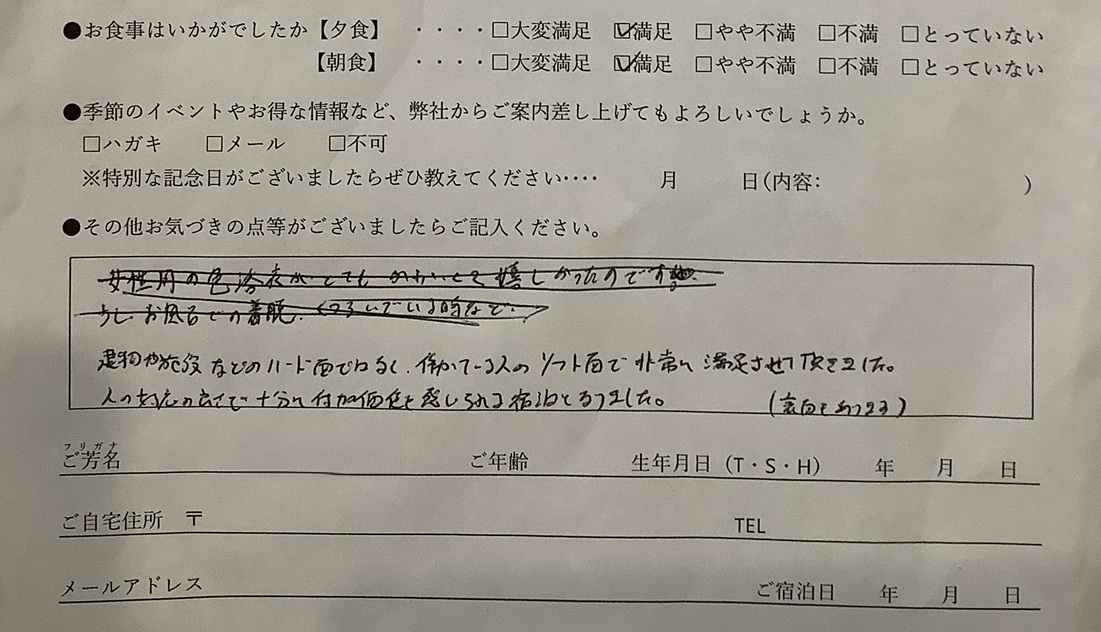 ●お食事はいかがでしたか【夕食】 ・・・・□大変満足 ☑満足 □やや不満 □不満 □とっていない
【朝食】 ・・・・□大変満足 ☑満足 □やや不満 □不満 □とっていない
●季節のイベントやお得な情報など、弊社からご案内差し上げてもよろしいでしょうか。
□ハガキ □メール □不可
※特別な記念日がございましたらぜひ教えてください‥‥ 月 日(内容: )
●その他お気づきの点等がございましたらご記入ください。
女性用の色浴衣がとても かわいくて嬉しかったのです
お風呂での着脱、くつろいでいる時など
建物や施設などのハード面ではなく、働かている人のソフト面で非常に満足させて頂きました。
人の対応の良さで十分に付加価値を感じられる宿泊となりました。 (裏面もあります)
フリガナ
ご芳名 ご年齢 生年月日（T・S・H） 年 月 日
ご自宅住所 〒 TEL
メールアドレス ご宿泊日 年 月 日